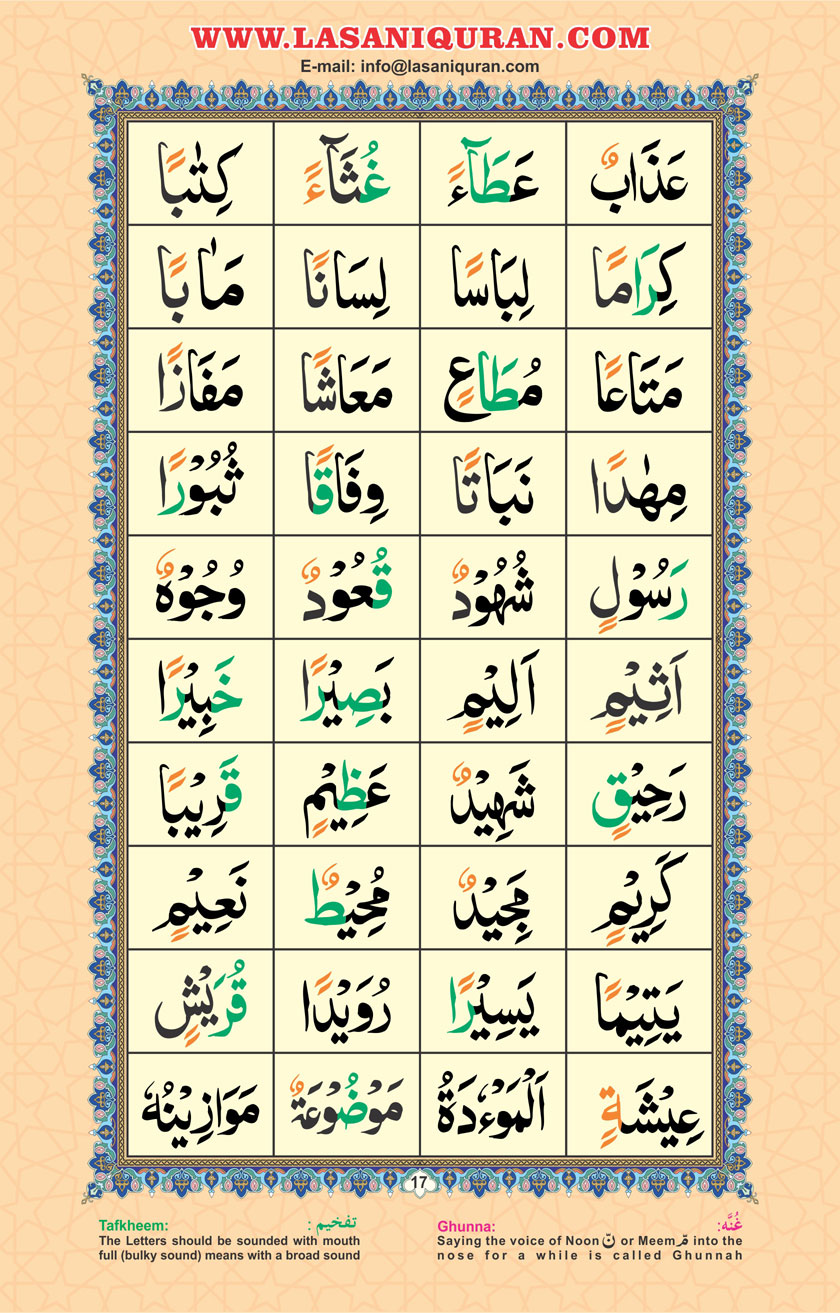 WWW.LASANIQURAN.COM
E-mail: info@lasaniquran.com
عَذَابٌ عَطَآءً غُثَآءً كِتٰبًا
كِرَامًا لِبَاسًا لِسَانًا مَاٰبًا
مَتَاعًا مُطَاعٍ مَعَاشًا مَفَازًا
مِهٰدًا نَبَاتًا وِفَاقًا ثُبُوْرًا
رَسُوْلٍ شُهُوْدٌ قُعُوْدٌ وُجُوْهٌ
اَثِيْمٍ اَلِيْمٍ بَصِيْرًا خَبِيْرًا
رَحِيْقٍ شَهِيْدٌ عَظِيْمٍ قَرِيْبًا
كَرِيْمٍ مَجِيْدٌ مُحِيْطٌ نَعِيْمٍ
يَتِيْمًا يَسِيْرًا رُوَيْدًا قُرَيْشٍ
عِيْشَةٍ اَلْمَوْءٗدَةُ مَوْضُوْعَةٌ مَوَازِيْنُهٗ
17
Tafkheem: تفخیم :
The Letters should be sounded with mouth
full (bulky sound) means with a broad sound
Ghunna: غُنَّه:
Saying the voice of Noon نّ or Meem مّ into the
nose for a while is called Ghunnah